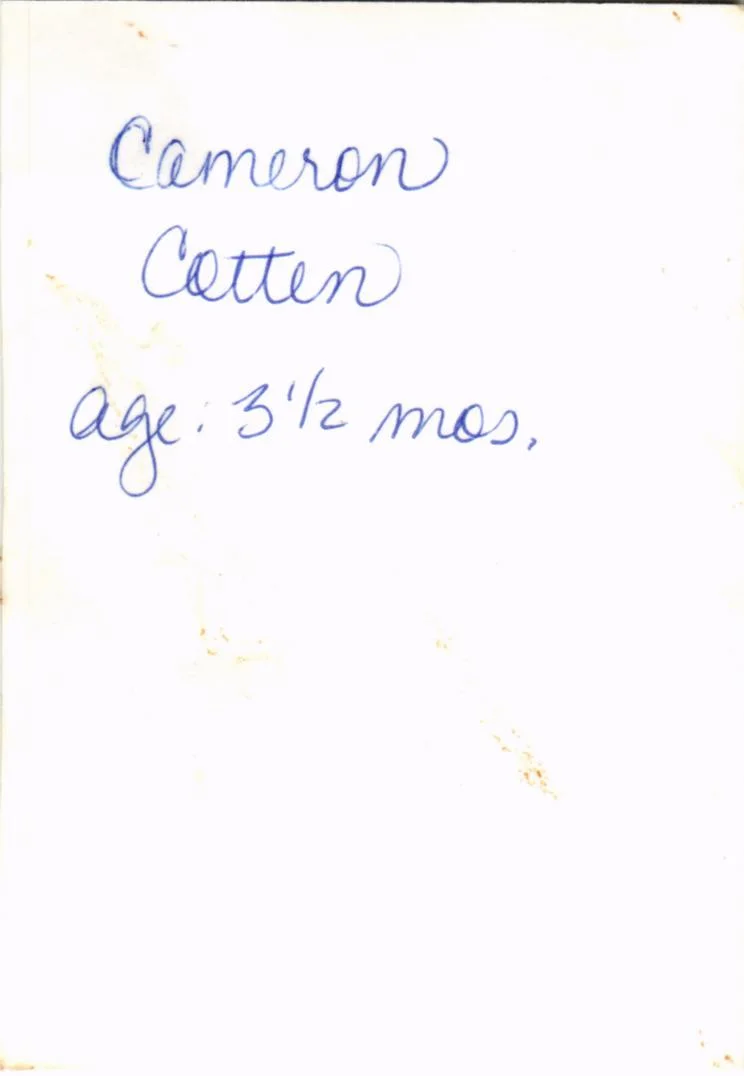 Cameron
Cotten
age: 3 1/2 mos.